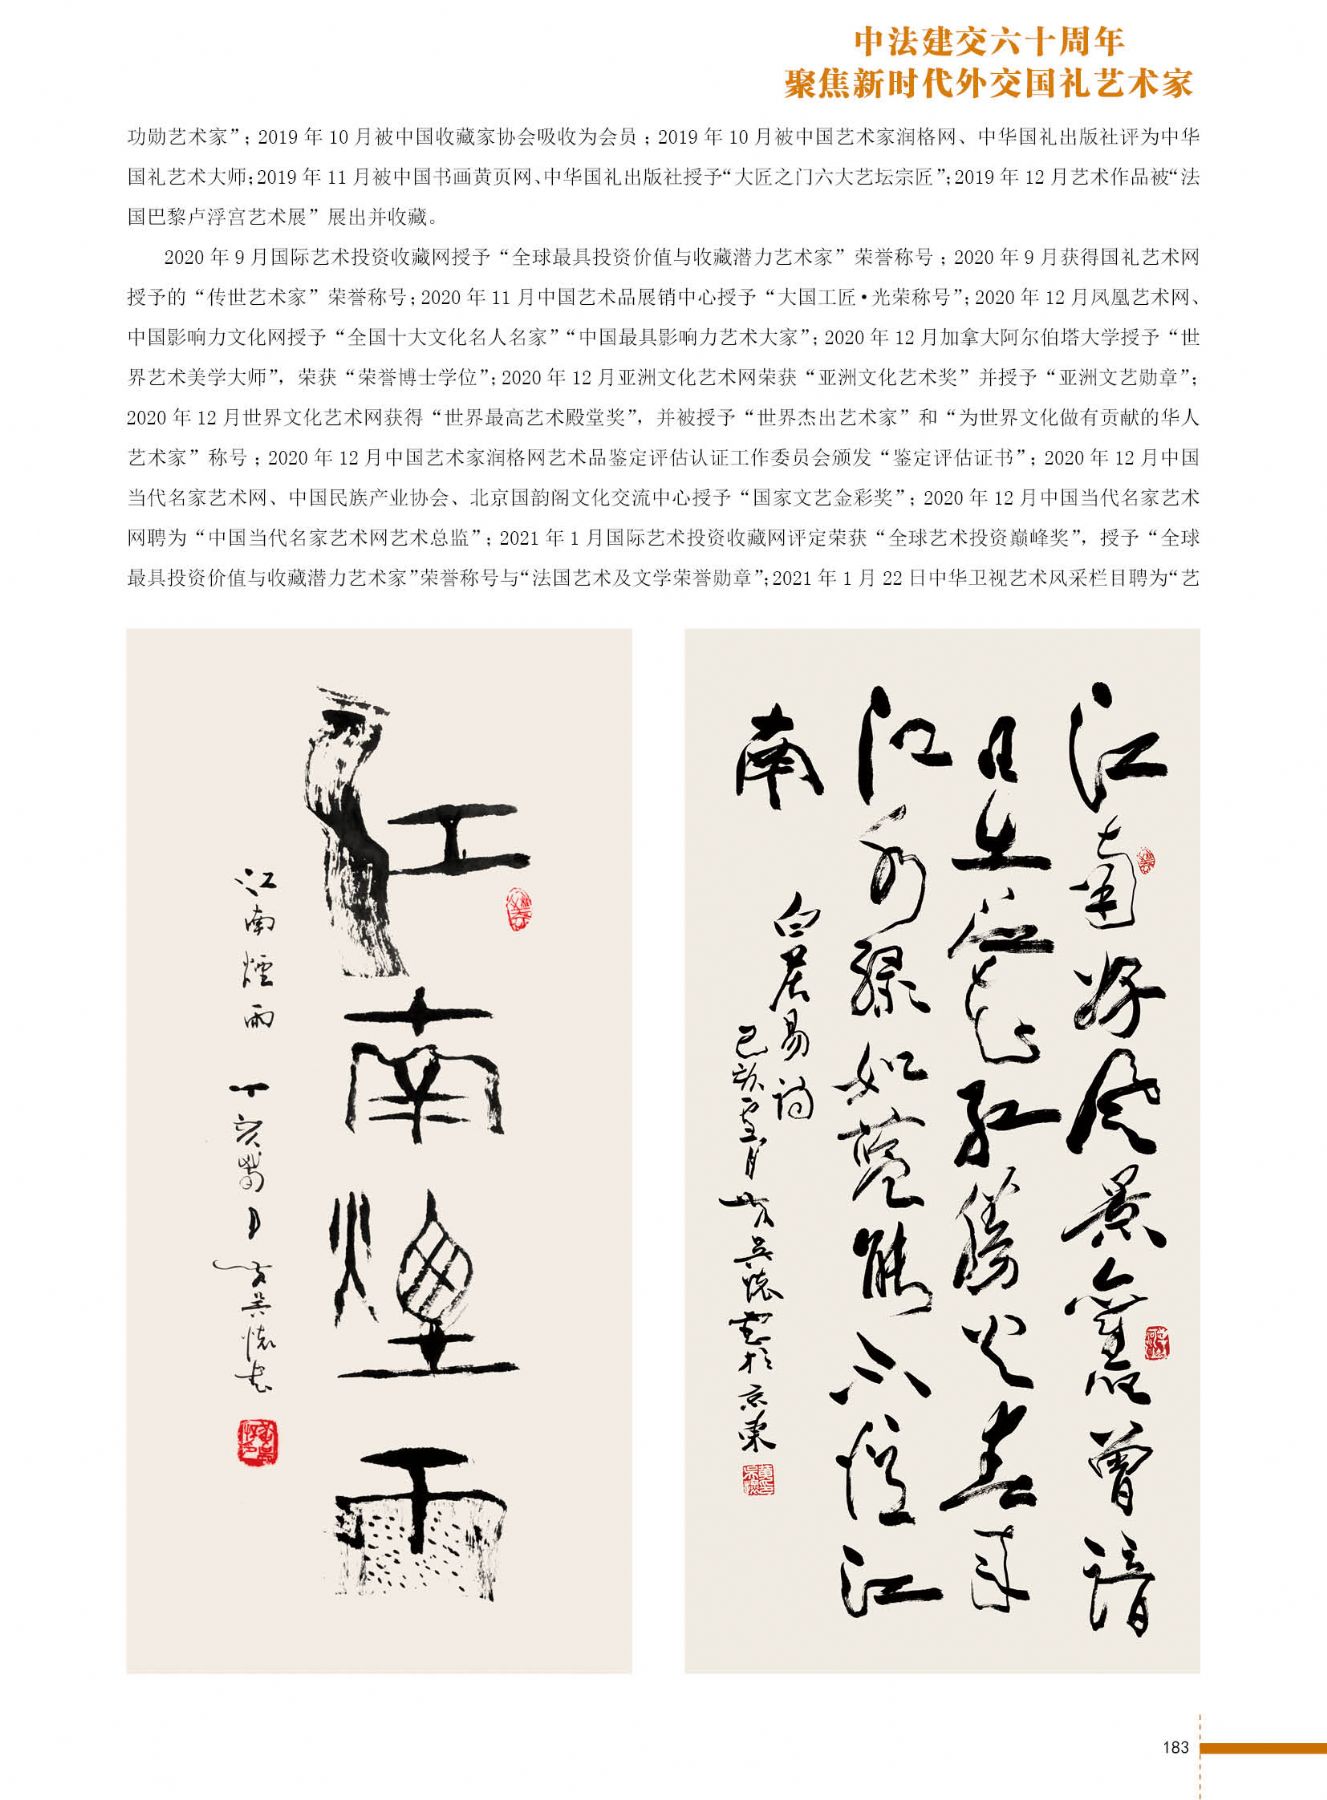 中法建交六十周年
聚焦新时代外交国礼艺术家
功勋艺术家”；2019 年 10 月被中国收藏家协会吸收为会员；2019 年 10 月被中国艺术家润格网、中华国礼出版社评为中华
国礼艺术大师；2019 年 11 月被中国书画黄页网、中华国礼出版社授予“大匠之门六大艺坛宗匠”；2019 年 12 月艺术作品被“法
国巴黎卢浮宫艺术展”展出并收藏。
2020 年 9 月国际艺术投资收藏网授予“全球最具投资价值与收藏潜力艺术家”荣誉称号；2020 年 9 月获得国礼艺术网
授予的“传世艺术家”荣誉称号；2020 年 11 月中国艺术品展销中心授予“大国工匠·光荣称号”；2020 年 12 月凤凰艺术网、
中国影响力文化网授予“全国十大文化名人名家”“中国最具影响力艺术大家”；2020 年 12 月加拿大阿尔伯塔大学授予“世
界艺术美学大师”，荣获“荣誉博士学位”；2020 年 12 月亚洲文化艺术网荣获“亚洲文化艺术奖”并授予“亚洲文艺勋章”；
2020 年 12 月世界文化艺术网获得“世界最高艺术殿堂奖”，并被授予“世界杰出艺术家”和“为世界文化做有贡献的华人
艺术家”称号；2020 年 12 月中国艺术家润格网艺术品鉴定评估认证工作委员会颁发“鉴定评估证书”；2020 年 12 月中国
当代名家艺术网、中国民族产业协会、北京国韵阁文化交流中心授予“国家文艺金彩奖”；2020 年 12 月中国当代名家艺术
网聘为“中国当代名家艺术网艺术总监”；2021 年 1 月国际艺术投资收藏网评定荣获“全球艺术投资巅峰奖”，授予“全球
最具投资价值与收藏潜力艺术家”荣誉称号与“法国艺术及文学荣誉勋章”；2021 年 1 月 22 日中华卫视艺术风采栏目聘为“艺
江南煙雨
江南煙雨 丁亥 月 吴怀书
江南好风景舊曾諳
日出江花红勝火春来
江水绿如蓝能不憶江
南
白居易詩
己亥 月 吴懷 书於京東
183